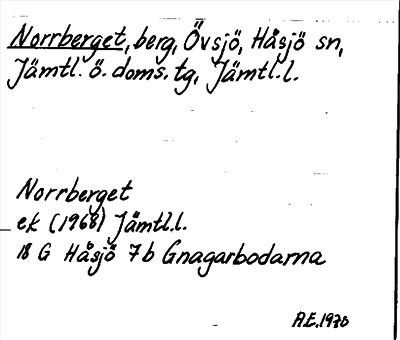 Norrberget, berg, Övsjö, Håsjö sn,
Jämtl. ö. doms. tg, Jämtl.l.
Norrberget
ek (1968) Jämtl.l.
18 G Håsjö 7b Gnagarbodarna
A.E. 1970